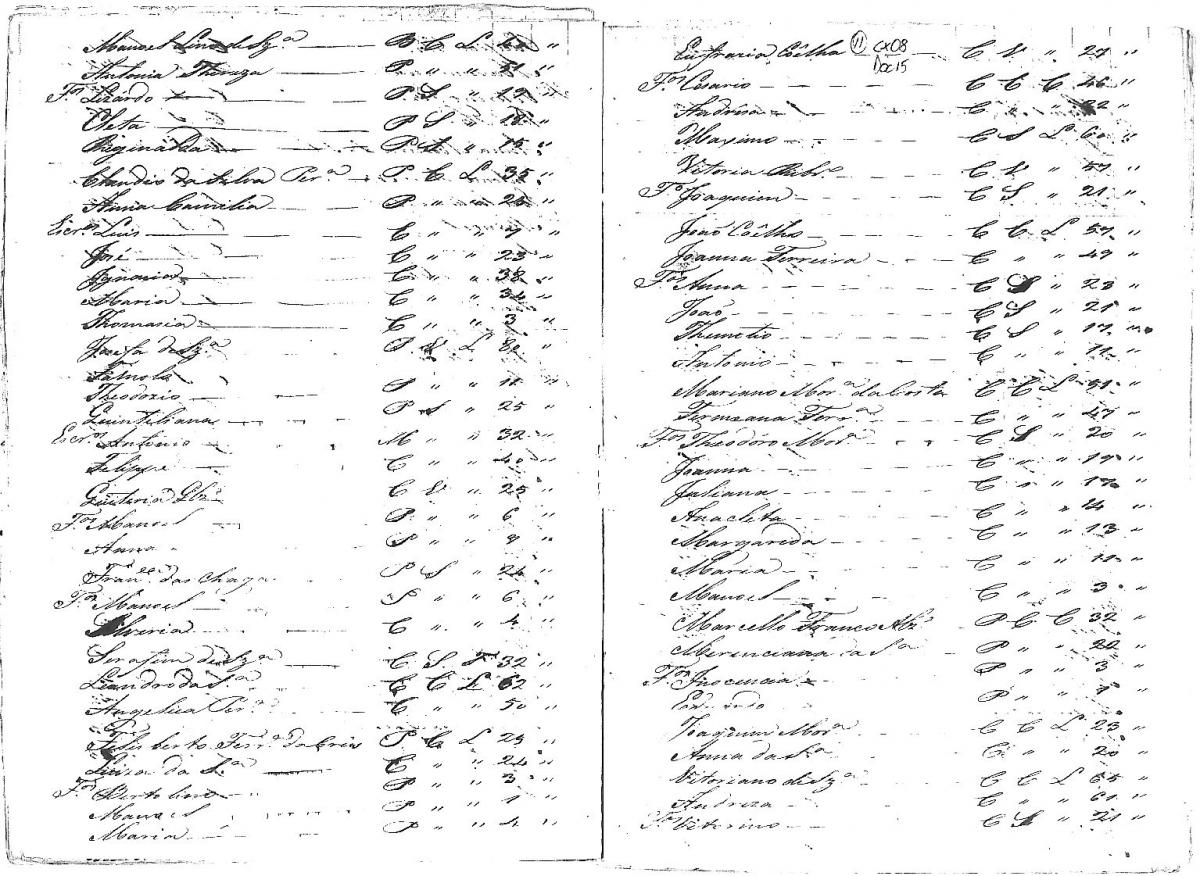 Manoel Lino de Sz.ª B C L 42 "
Antonia Thereza P " " 51 "
F.os Lizardo P S " 19 "
Cleta P S " 18 "
Reginalda P S " 15 "
Claudio da Silva Per.ª P C L 35 "
Anna Camilia P " " 26 "
Escr.os Luis C " " 7 "
José C " " 23 "
Ignacia C " " 38 "
Maria C " " 34 "
Thomasia C " " 3 "
Josefa de Sz.ª P L 80 "
Theodozio P " " 11 "
Quintiliana P S " 25 "
Escr.os Antonio M " " 32 "
Filippe C " " 40 "
Quiteria C " 25 "
F.os Manoel P " " 6 "
Anna P " "
Fran.co das Chaga P S " 26 "
F.os Manoel P " " 6 "
Silveria C " " 4 "
Serafim de Sz.ª C S F 32 "
Leandro da S.ª C C L 62 "
Angelica Per.ª C " " 50 "
Felisberto Ferr.ª da P C L 25 "
Luiza da S.ª C " " 24 "
F.os Bertolino P " " 3 "
Manoel P " " 1 "
Maria P " " 4 "
Eufrazia Coêlha C V " 27 "
VI CX08
Doc15
F.os Cesario C C C 46 "
Andreza C " " 32 "
Maximo C S L 60 "
Vitoria Rib.ª C V " 57 "
F.o Joaquim C S " 21 "
João Coêlho C C L 57 "
Joanna Ferreira C " " 47 "
F.os Anna C S " 23 "
João C S " 21 "
C S " 17 "
Antonio C " " 11 "
Mariano Mor.ª da Costa C C L 51 "
Ferr.ª C " " 47 "
F.os Theodóro Mor.ª C S " 20 "
Joanna C " " 19 "
Juliana C " " 17 "
Anacleta C " " 14 "
Margarida C " " 13 "
Maria C " " 11 "
Manoel C " " 3 "
Marcello Franco P C C 32 "
Merenciana da S.ª P " " 22 "
F.os Inocencia P " " 3 "
P " " 1 "
Joaquim Mor.ª C C L 23 "
Anna da S.ª C " " 20 "
Vitoriano de Sz.ª C C L 65 "
Andreza C " " 61 "
F.os Viturino C S " 21 "